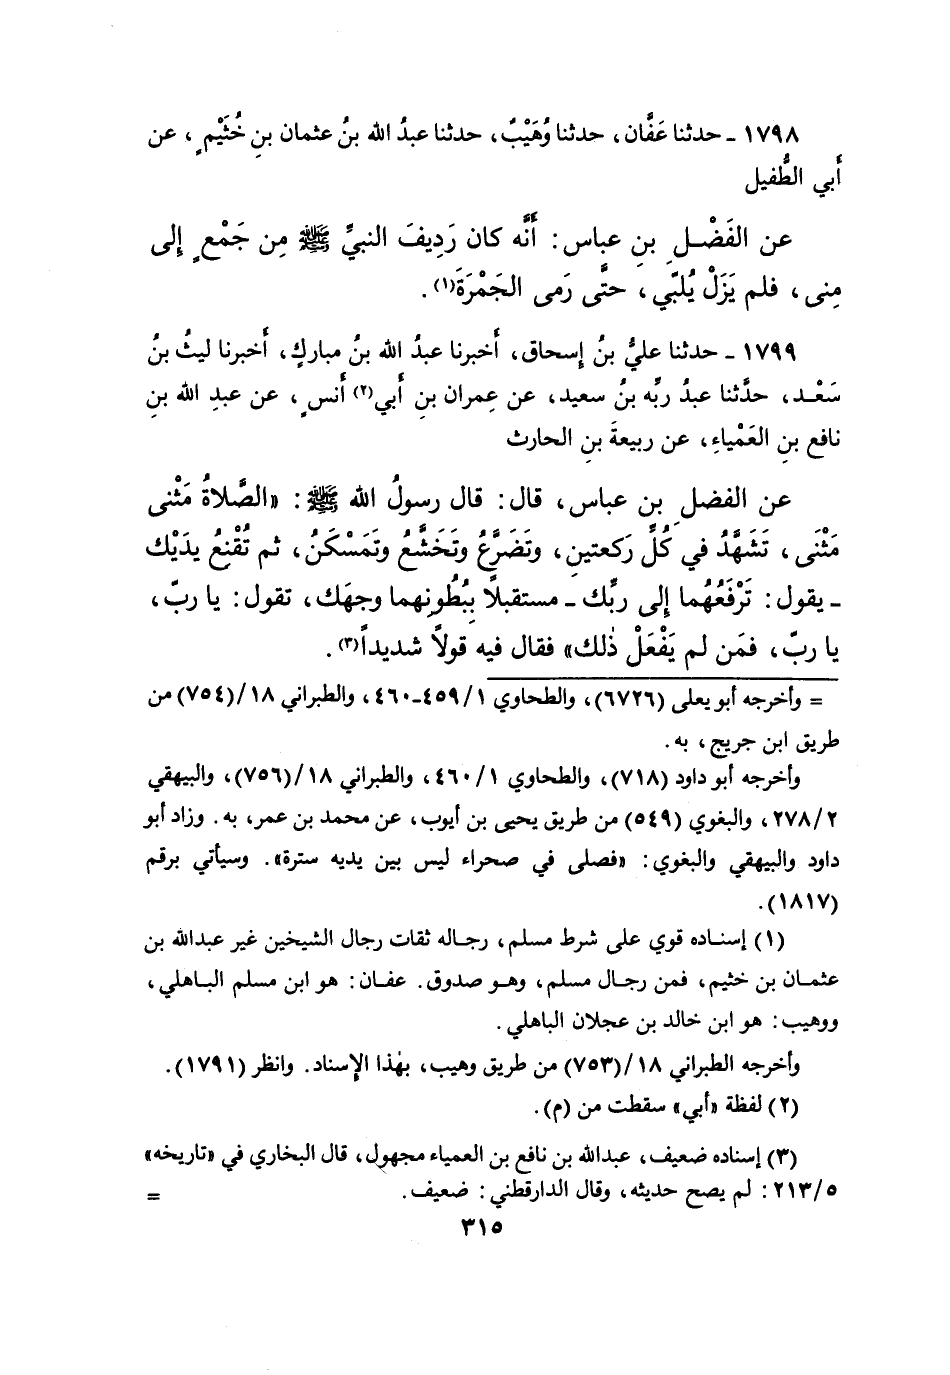 ١٧٩٨ ـ حدثنا عَفَّان، حدثنا وُهَيْبٌ، حدثنا عبدُ الله بنُ عثمان بنِ خُثَيْمٍ، عن
أَبي الطُّفيل
عن الفَضْلِ بنِ عباس: أَنَّه كان رَدِيفَ النبيِّ ﷺ مِن جَمْعٍ إِلى
مِنى، فلم يَزَلْ يُلبِّي، حتَّى رَمى الجَمْرَةَ(١).
١٧٩٩ ـ حدثنا عليُّ بنُ إِسحاق، أَخبرنا عبدُ الله بنُ مباركٍ، أَخبرنا ليثُ بنُ
سَعْد، حدَّثنا عبدُ ربِّه بنُ سعيد، عن عِمران بنِ أَبي(٢) أَنسٍ، عن عبدِ الله بنِ
نافع بنِ العَمْياءِ، عن ربيعةَ بنِ الحارث
عن الفضلِ بنِ عباس، قال: قال رسولُ الله ﷺ: «الصَّلاةُ مَثْنى
مَثْنَى، تَشَهَّدُ في كلِّ رَكعتينِ، وتَضَرَّعُ وتَخَشَّعُ وتَمَسْكَنُ، ثم تُقْنِعُ يدَيْك
ـ يقول: تَرْفَعُهُما إلى ربِّك ـ مستقبلاً ببُطُونِهما وجهَك، تقول: يا ربّ،
يا ربّ، فمَن لم يَفْعَلْ ذٰلك» فقال فيه قولاً شديداً(٣).
= وأخرجه أبو يعلى (٦٧٢٦)، والطحاوي ٤٥٩/١-٤٦٠، والطبراني ١٨/(٧٥٤) من
طريق ابن جريج، به.
وأخرجه أبو داود (٧١٨)، والطحاوي ٤٦٠/١، والطبراني ١٨/(٧٥٦)، والبيهقي
٢٧٨/٢، والبغوي (٥٤٩) من طريق يحيى بن أيوب، عن محمد بن عمر، به. وزاد أبو
داود والبيهقي والبغوي: «فصلى في صحراء ليس بين يديه سترة». وسيأتي برقم
(١٨١٧).
(١) إسناده قوي على شرط مسلم، رجاله ثقات رجال الشيخين غير عبدالله بن
عثمان بن خثيم، فمن رجال مسلم، وهو صدوق. عفان: هو ابن مسلم الباهلي،
ووهيب: هو ابن خالد بن عجلان الباهلي.
وأخرجه الطبراني ١٨/(٧٥٣) من طريق وهيب، بهٰذا الإسناد. وانظر (١٧٩١).
(٢) لفظة «أبي» سقطت من (م).
(٣) إسناده ضعيف، عبدالله بن نافع بن العمياء مجهول، قال البخاري في «تاريخه»
٢١٣/٥: لم يصح حديثه، وقال الدارقطني: ضعيف. =
٣١٥